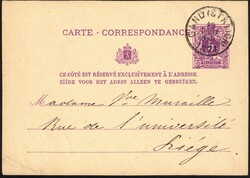 CARTE - CORRESPONDANCE
GAND (STATION)
CE CÔTÉ EST RÉSERVÉ EXCLUSIVEMENT À L'ADRESSE.
ZIJDE VOOR HET ADRES ALLEEN TE GEBRUIKEN.
Madame Vve Muraille
Rue de l'université
Liége